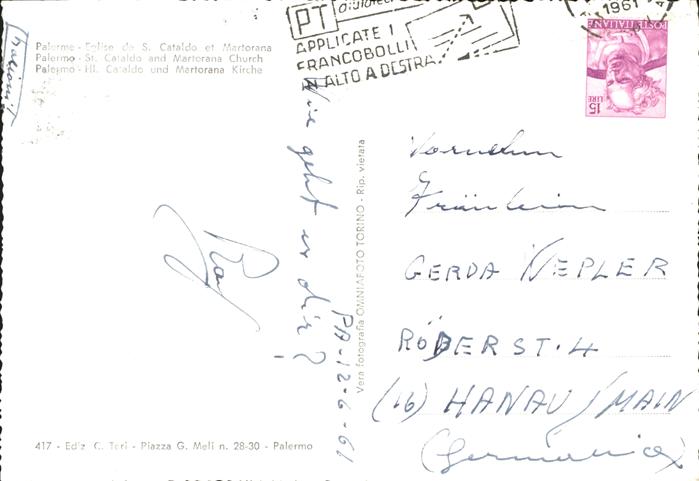 Palerme - Eglise de S. Cataldo et Martorana
Palermo - St. Cataldo and Martorana Church
Palermo - Hl. Cataldo und Martorana Kirche
PT
APPLICATE I
FRANCOBOLLI
IN ALTO A DESTRA
1961
POSTE ITALIANE
15 LIRE
Wie geht es dir?
PA-12-6-61
Vera fotografia OMNIAFOTO TORINO - Rip. vietata
Fräulein
GERDA NEPLER
RÖDERST. 4
(16) HANAU/MAIN
(Germania)
417 - Ediz C. Teri - Piazza G. Meli n. 28-30 - Palermo